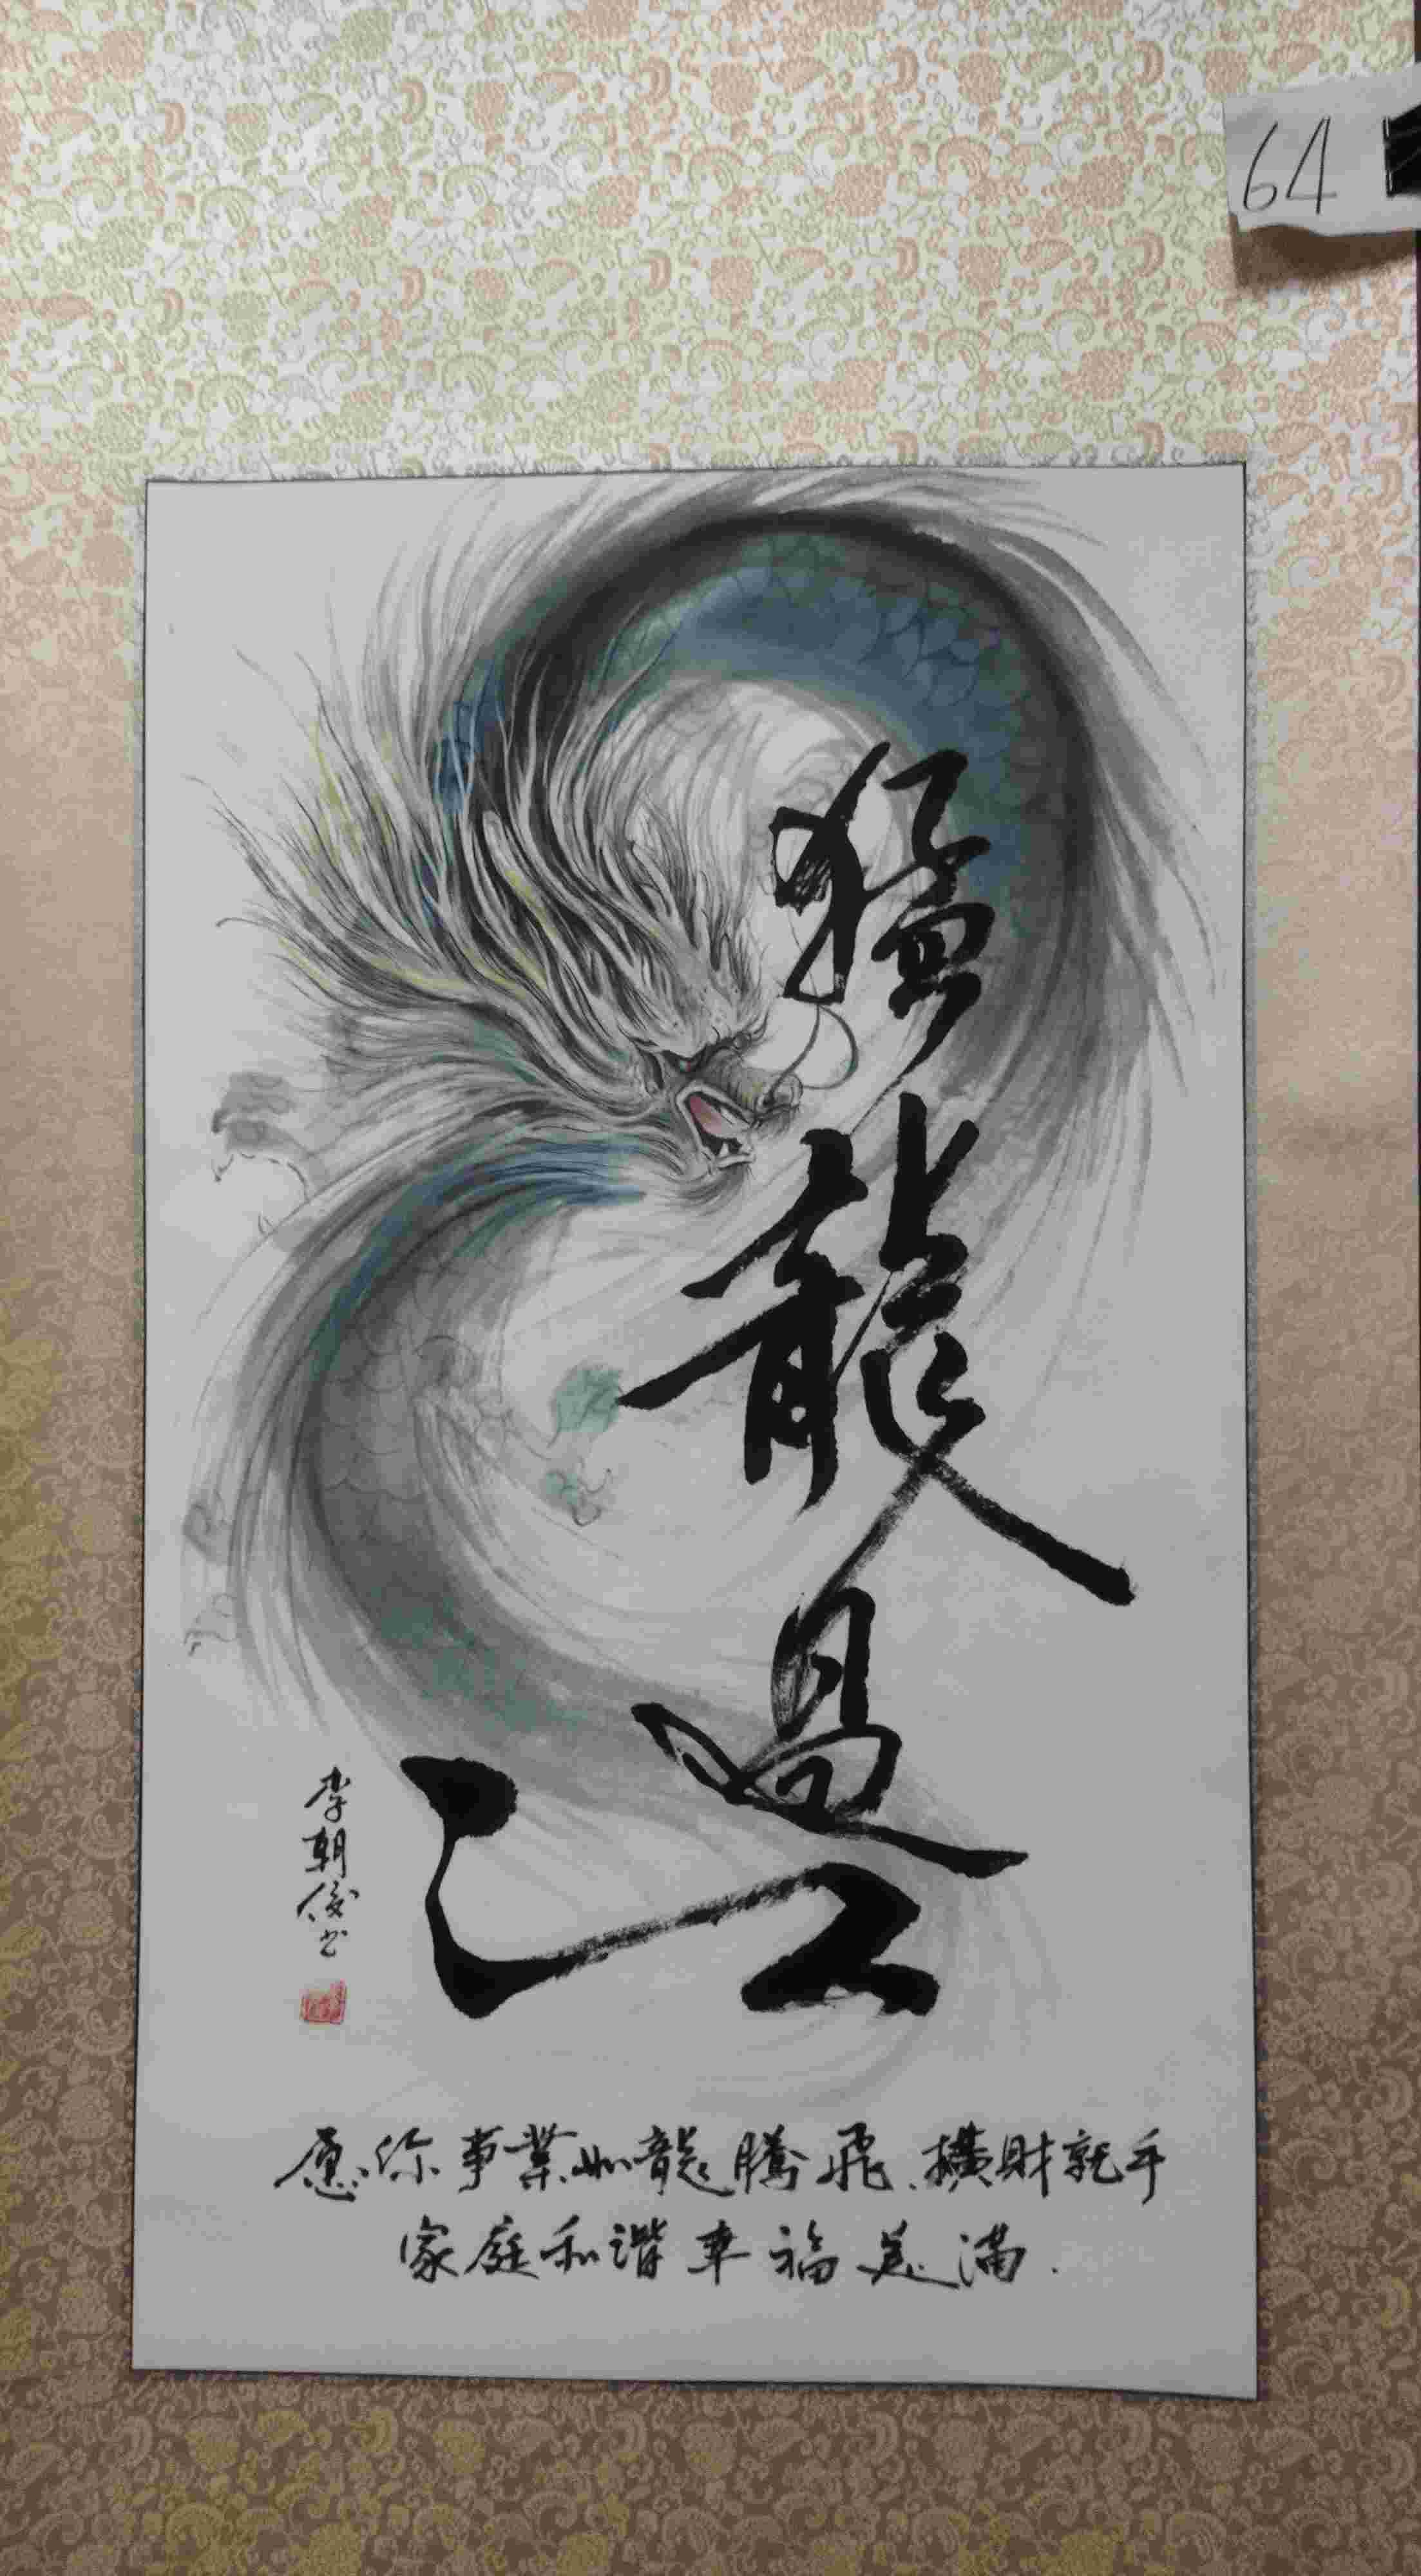 64
猛龍過江
李朝俊书
愿你事業如龍騰飛.横財就手
家庭和谐幸福美满.